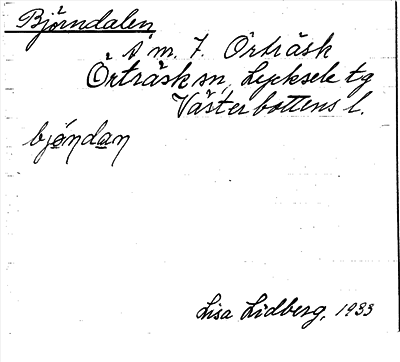 Björndalen
s m. 7. Örträsk
Örträsk sn, Lycksele tg
Västerbottens l.
bjöṇdaṇ
Lisa Lidberg, 1933